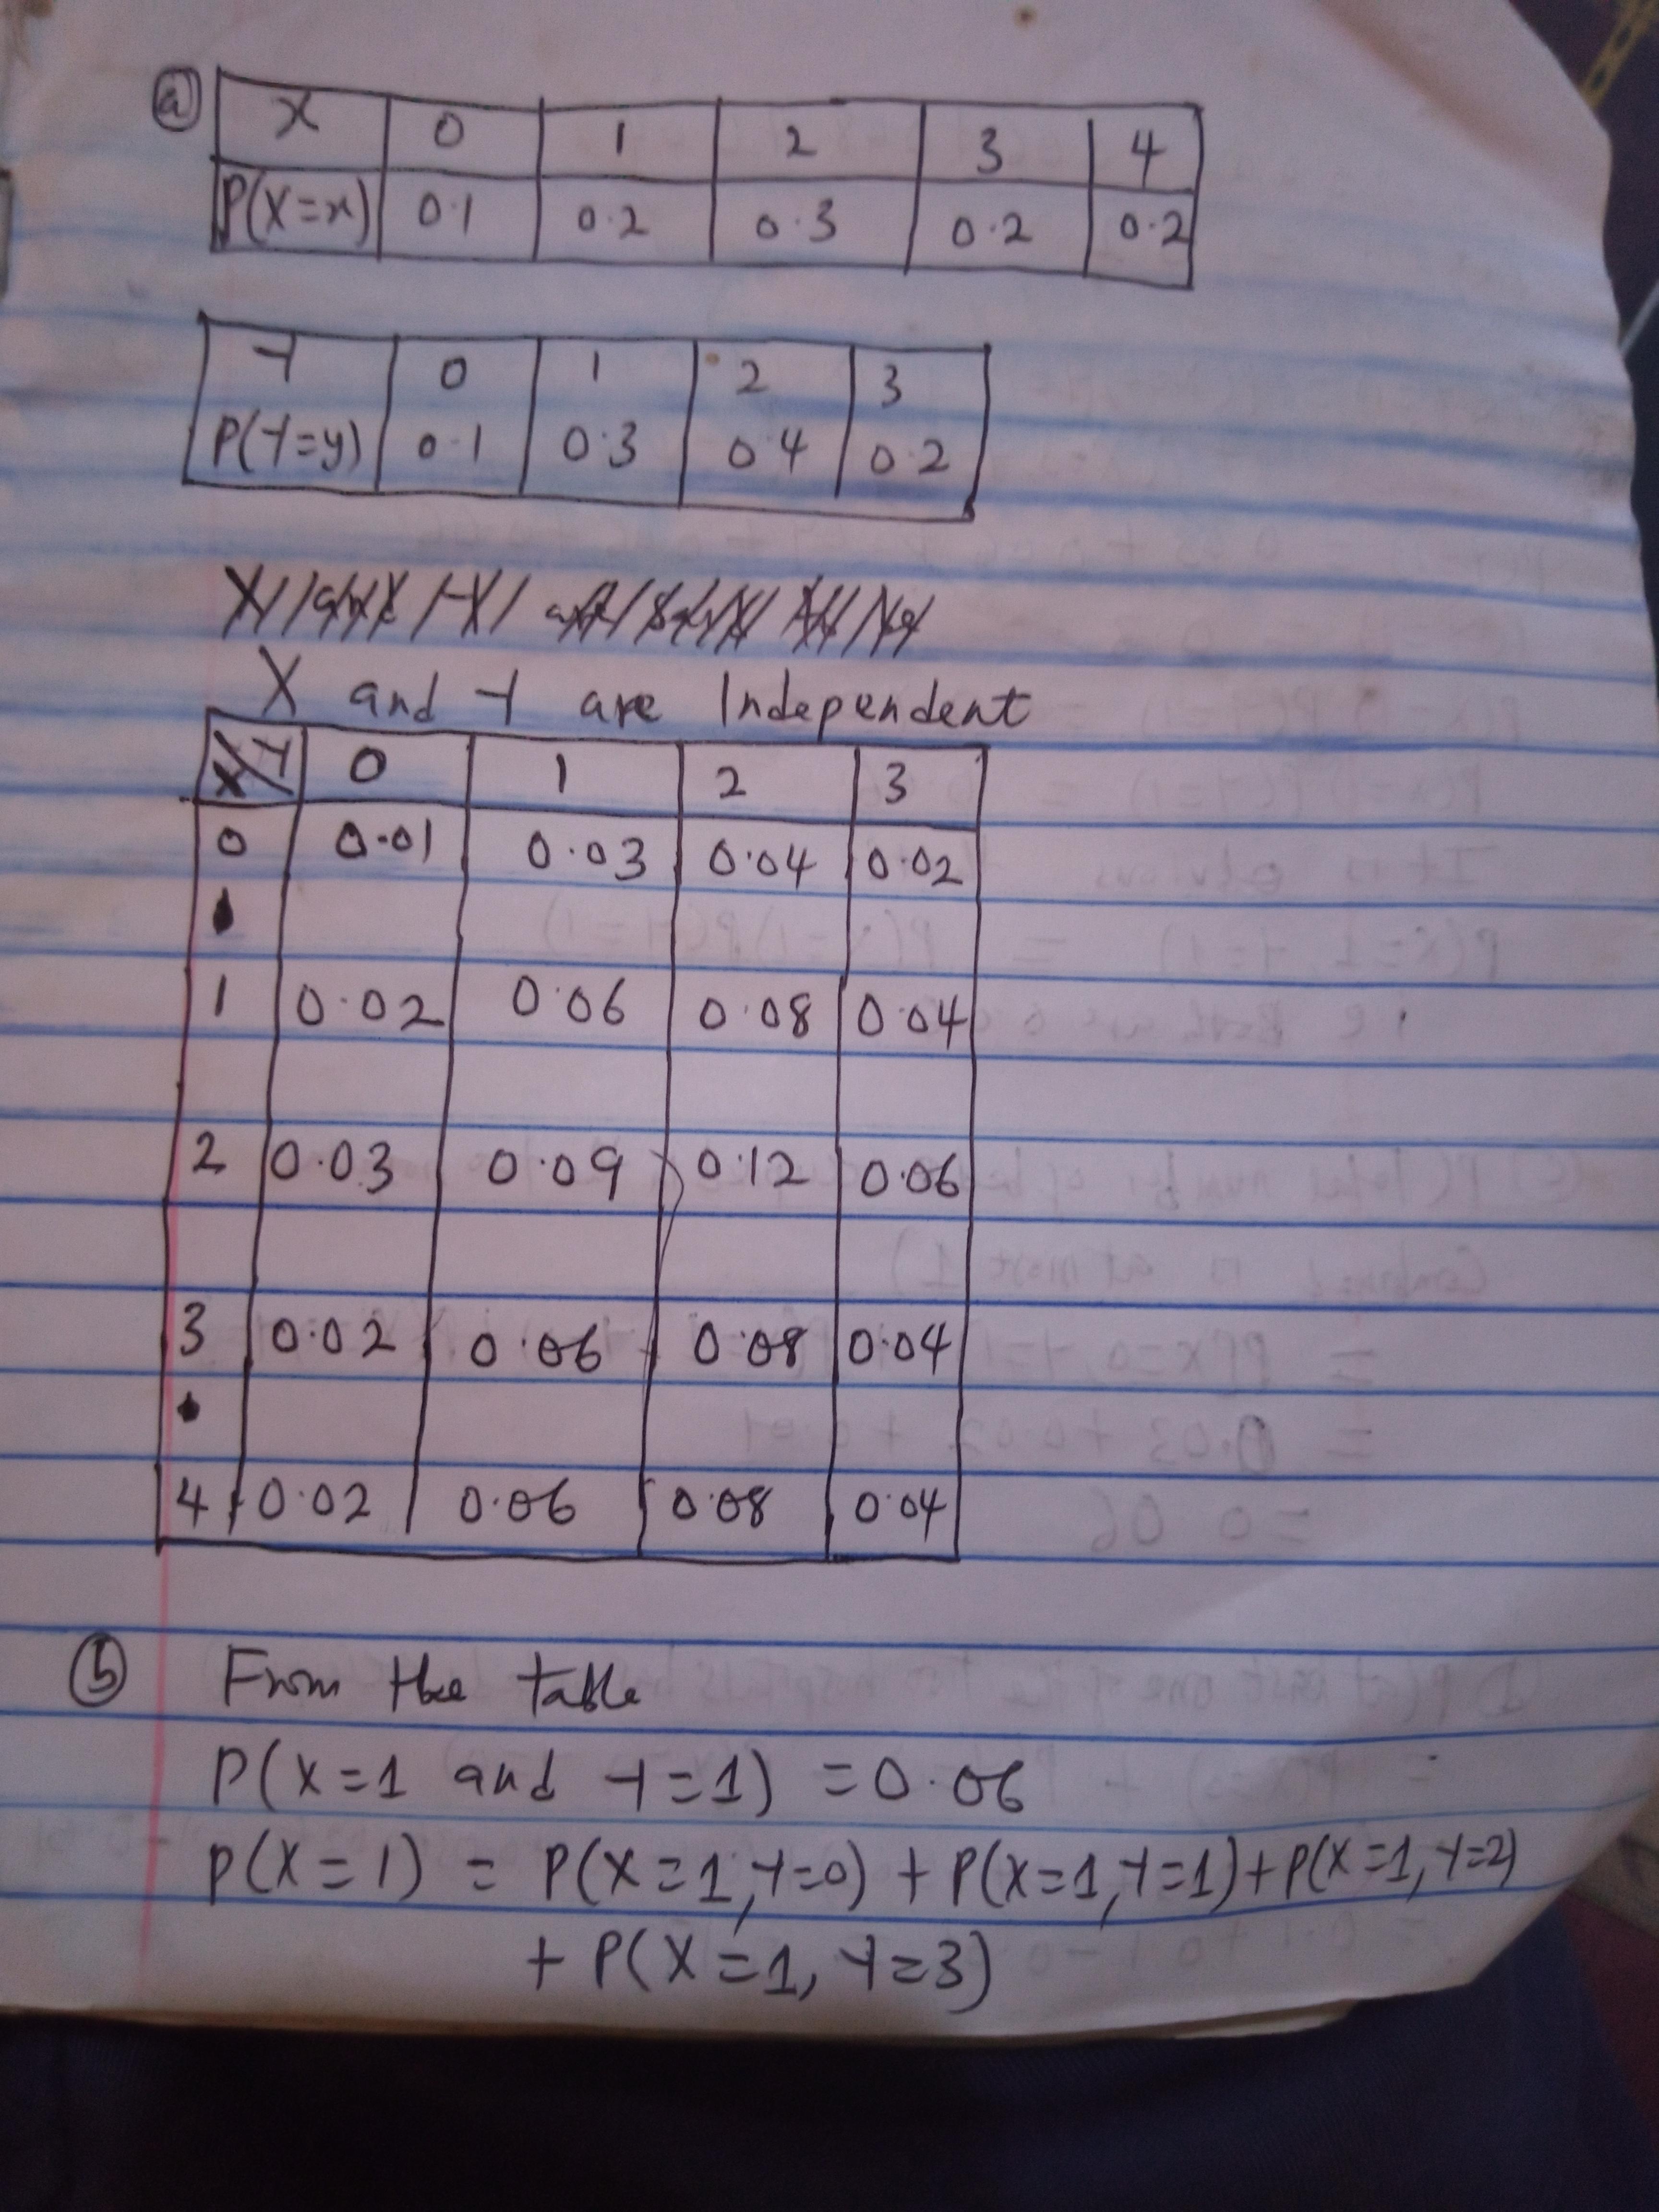 (a) X 0 1 2 3 4
P(X=x) 0.1 0.2 0.3 0.2 0.2
Y 0 1 2 3
P(Y=y) 0.1 0.3 0.4 0.2
X and Y are Independent
X\Y 0 1 2 3
0 0.01 0.03 0.04 0.02
1 0.02 0.06 0.08 0.04
2 0.03 0.09 0.12 0.06
3 0.02 0.06 0.08 0.04
4 0.02 0.06 0.08 0.04
(b) From the table
P(X=1 and Y=1) = 0.06
P(X=1) = P(X=1,Y=0) + P(X=1,Y=1)+P(X=1,Y=2)
+ P(X=1, Y=3)